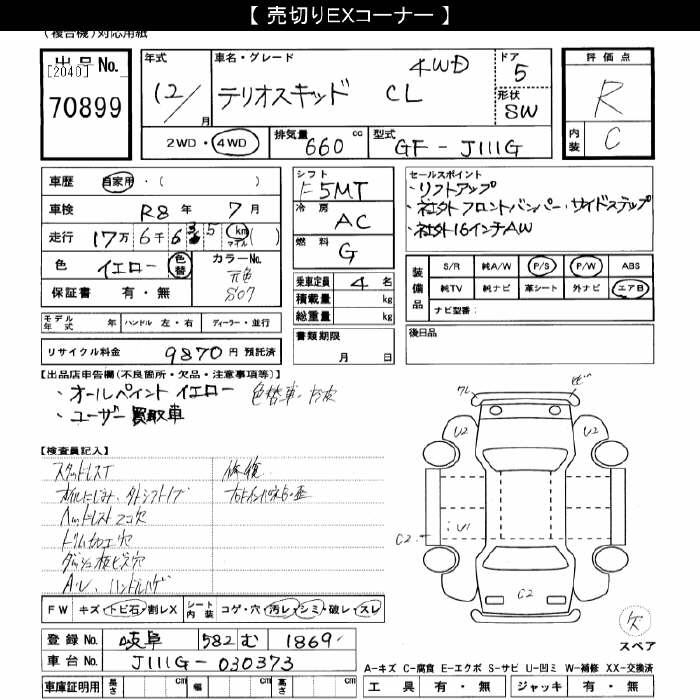 【 売切りEXコーナー 】
(複合機)対応用紙
出品No.
[2040]
70899
年式
12/
月
車名・グレード
テリオスキッド CL 4WD
ドア
5
形状
SW
2WD・4WD
排気量 660 cc
型式 GF-J111G
評価点
R
内装
C
車歴 自家用・( )
車検 R8年 7月
走行 17万6千6 5 km マイル( )
色 イエロー 色替
カラーNo.
元色
S07
保証書 有・無
シフト
F5MT
冷房
AC
燃料
G
乗車定員 4名
積載量 kg
総重量 kg
書類期限
月 日
セールスポイント
・リフトアップ
・社外フロントバンパー、サイドステップ
・社外16インチAW
装備品
S/R 純A/W P/S P/W ABS
純TV 純ナビ 革シート 外ナビ エアB
ナビ型番:
モデル年式 年 ハンドル 左・右 ディーラー・並行
後日品
リサイクル料金 9870 円 預託済
【出品店申告欄(不良箇所・欠品・注意事項等)】
・オールペイント イエロー 色替車
・ユーザー買取車
【検査員記入】
スタッドレスT 修復
ヘッドレスト2コ欠
トリム加工穴
ダッシュ板ビス穴
ハンドルハゲ
FW キズ・トビ石・割レX
シート内装 コゲ・穴・汚レ・シミ・破レ・スレ
登録No. 岐阜 582 む 1869
車台No. J111G-030373
車庫証明用 長さ cm 幅 cm 高さ cm
ワレ
U2
U2
C2
U1
C2
欠
スペア
A-キズ C-腐食 E-エクボ S-サビ U-凹ミ W-補修 XX-交換済
工具 有・無 ジャッキ 有・無